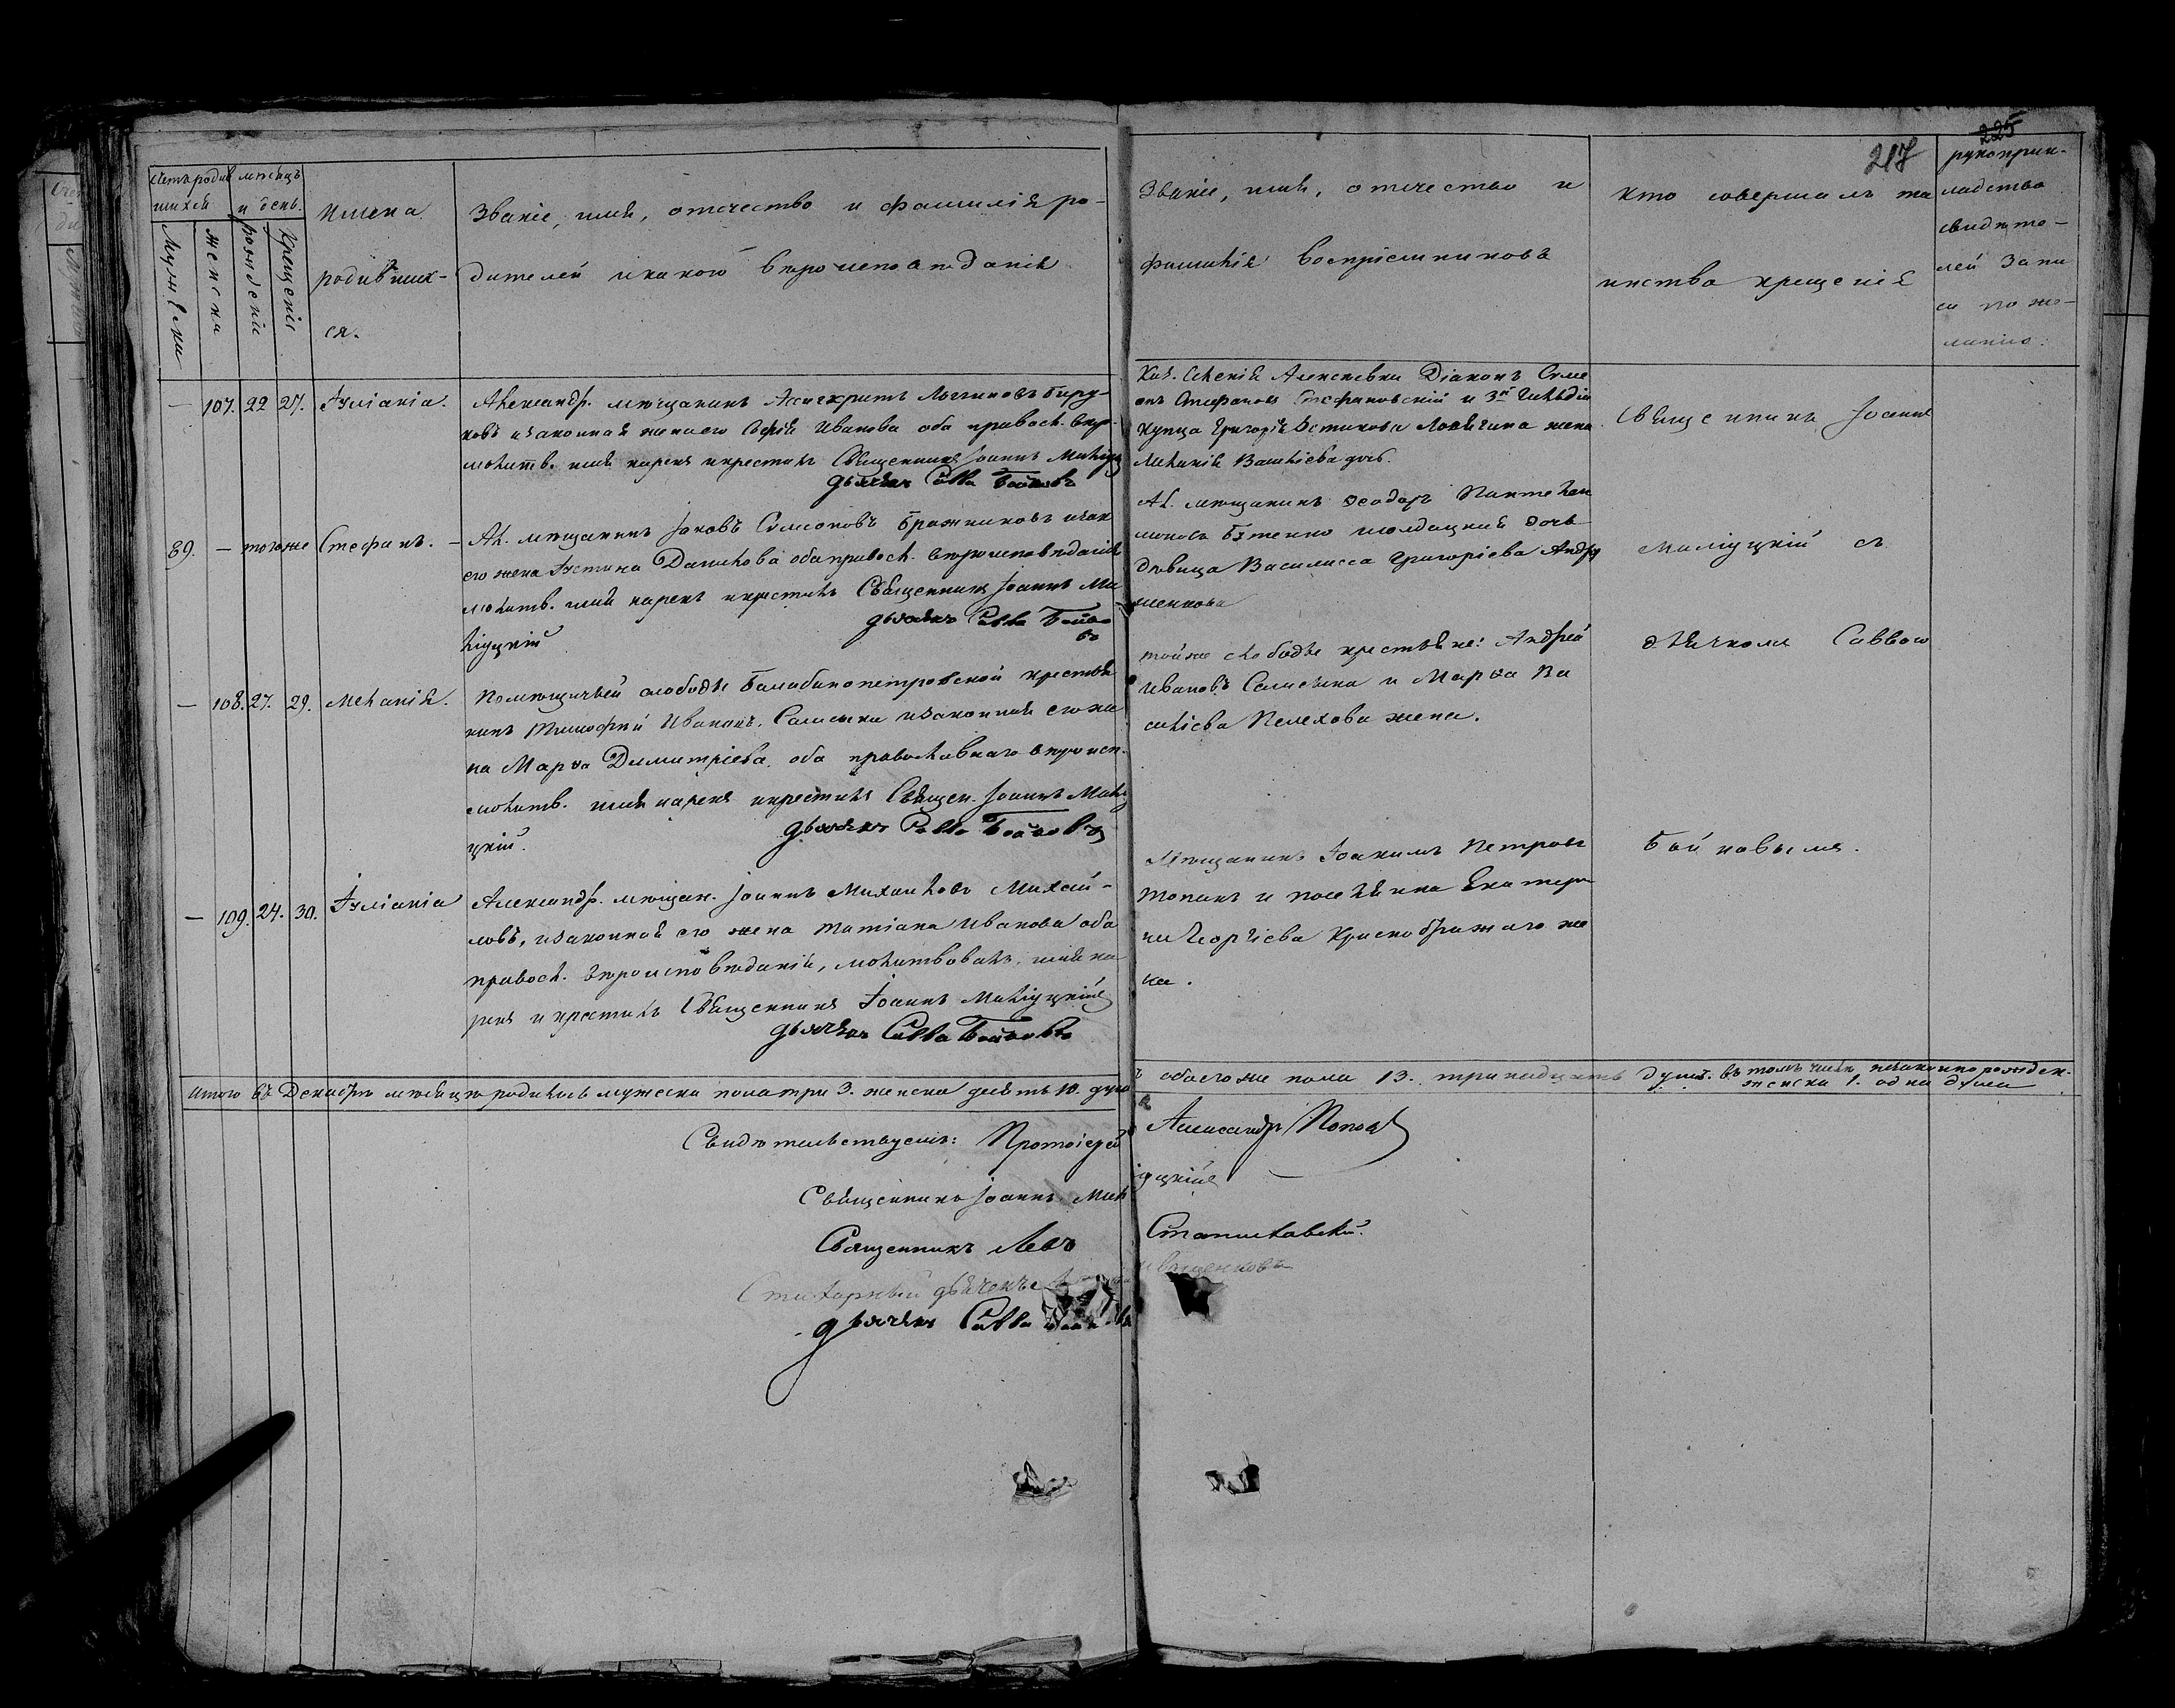 225
217
Счетъ родив
шихся
мѣсяцъ
и день.
Мужески
женски
рожденіе
крещеніе
Имена
родивших-
ся.
Званіе, имя, отчество и фамилія ро-
дителей и какого вѣроисповѣданія
Званіе, имя, отчество и
фамилія воспріемниковъ
Кто совершалъ та
инства крещенія
рукоприк-
ладство
свидѣте-
лей запи
си по же-
ланію.
— 107. 22 27. Іуліанія.
Александр. мѣщанинъ Логиновъ Бирю-
ковъ и законная жена его Софія Иванова оба правосл. вѣр.
молитв. имя нарекъ и крестилъ Священникъ Іоаннъ
дьячекъ Савва Бойковъ
Діаконъ Симе
онъ Стефановъ Стефановскій и 3й Гильдіи
купца Григорія жена
Меланія Васильева дочь.
Священникъ Іоаннъ
89. — тогоже Стефанъ. —
Ал. мѣщанинъ Іаковъ Симеоновъ Бражниковъ и зак
его жена Іустина Данилова оба правосл. вѣроисповѣданія
молитв. имя нарекъ и крестилъ Священникъ Іоаннъ Ми
ліуцкій
дьячекъ Савва Бойко
въ
Ал. мѣщанинъ Ѳеодоръ Пантелеи
моновъ дочь
дѣвица Василисса Григоріева Андру
шенкова
Миліуцкій съ
— 108. 27. 29. Меланія.
Помѣщичьей слободы Балабинопетровской крестья
нинъ Тимофей Ивановъ и законная его же
на Марѳа Димитріева оба православнаго вѣроисп.
молитв. имя нарекъ и крестилъ Священ. Іоаннъ
цкій.
дьячекъ Савва Бойковъ
тойже слободы крестьяне: Андрей
Ивановъ и Марѳа Ва
сильева Пелехова жена.
дьячкомъ Саввою
— 109. 24. 30. Іуліанія
Александр. мѣщан. Іоаннъ Михаиловъ Михай-
ловъ, и законная его жена Татіана Иванова оба
правосл. вѣроисповѣданія, молитвовалъ, имя на
рекъ и крестилъ Священникъ Іоаннъ Миліуцкій
дьячекъ Савва Бойковъ
Мѣщанинъ Іоакимъ Петровъ
и Екатери
на Георгіева же
на.
Бойковымъ.
Итого въ Декабрѣ мѣсяцѣ родилось мужеска пола три 3. женска десять 10. душъ
обоего же пола 13. тринадцать душъ. въ томъ числѣ незаконнорожден.
женска 1. одна душа
Свидѣтельствуемъ: Протоіерей Александръ Поповъ
Священникъ Іоаннъ Миліуцкій
Священникъ Левъ Станиславскій.
Стихарный дьячекъ
дьячекъ Савва